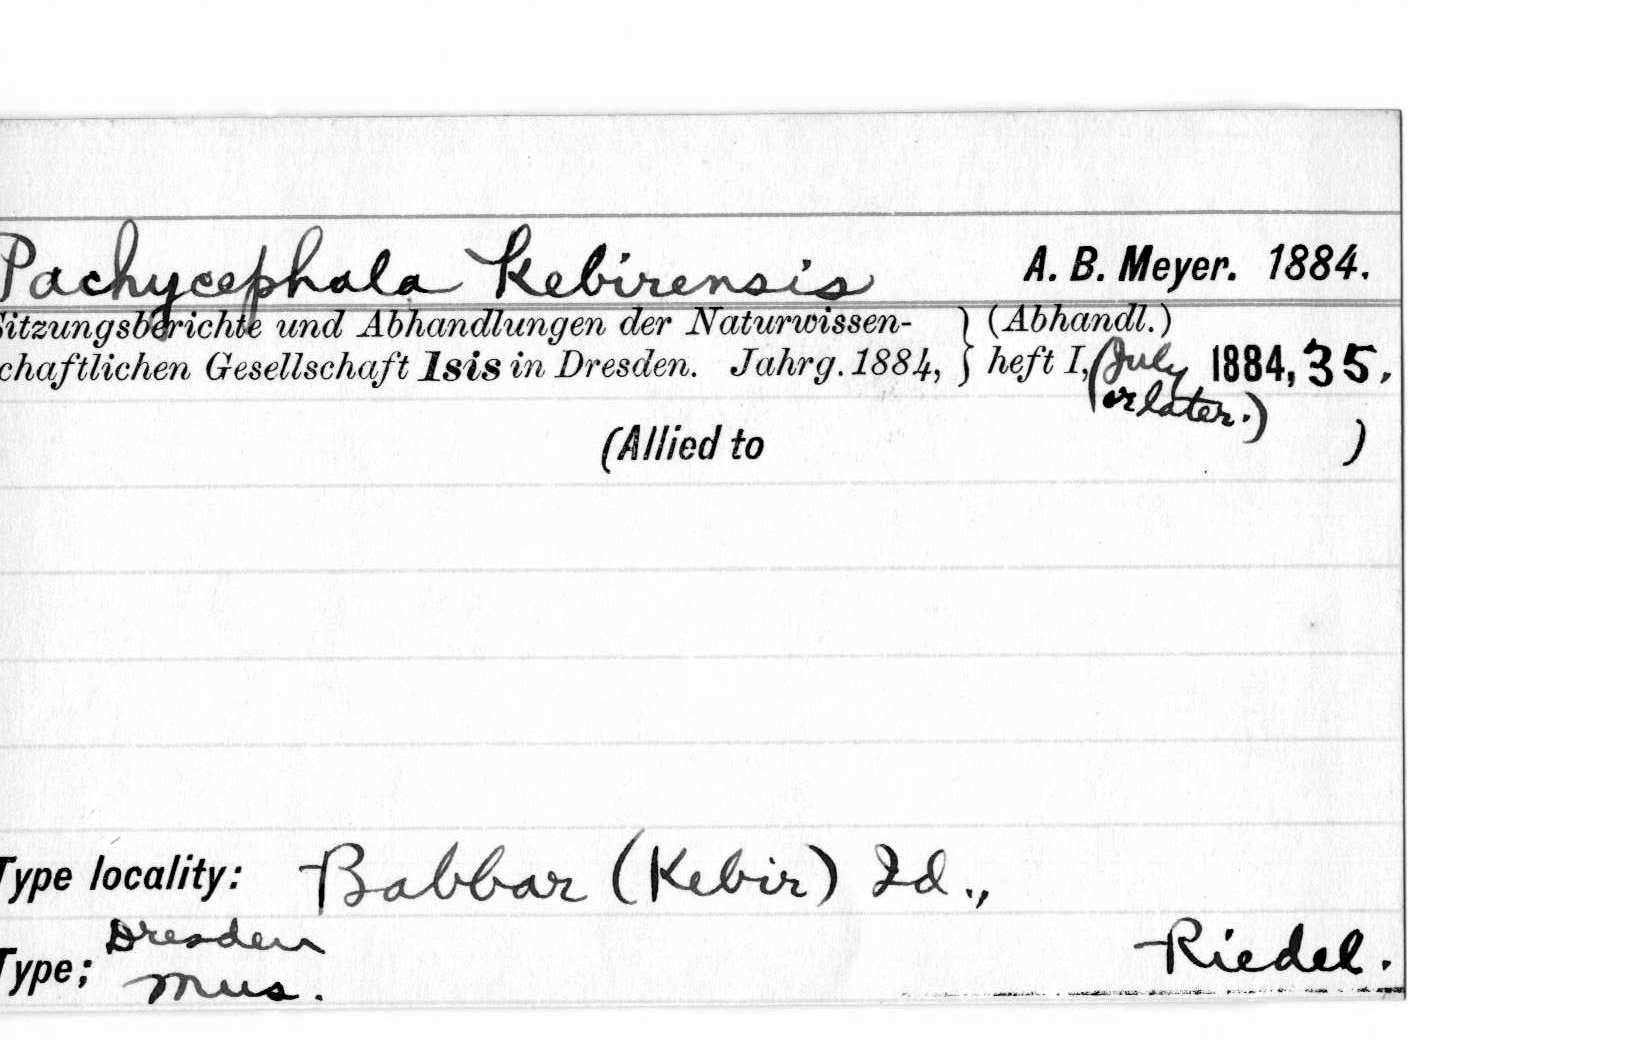 Pachycephala kebirensis A. B. Meyer. 1884.
Sitzungsberichte und Abhandlungen der Naturwissen- } (Abhandl.)
schaftlichen Gesellschaft Isis in Dresden. Jahrg. 1884, } heft I, (July 1884, 35.
or later.)
(Allied to )
Type locality: Babbar (Kebir) Id.,
Dresden
Type; Mus. Riedel.